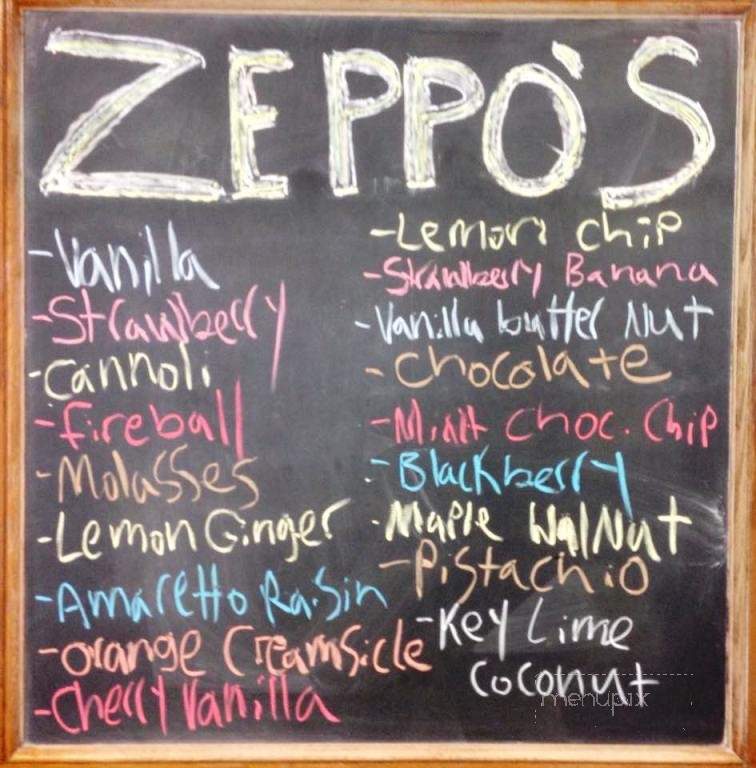 ZEPPO'S
-Vanilla
-Strawberry
-Cannoli
-Fireball
-Molasses
-Lemon Ginger
-Amaretto Raisin
-orange Creamsicle
-Cherry Vanilla
-Lemon Chip
-Strawberry Banana
-Vanilla butter Nut
-Chocolate
-Mint Choc. Chip
-Blackberry
-Maple Walnut
-Pistachio
-Key Lime
Coconut
menupix